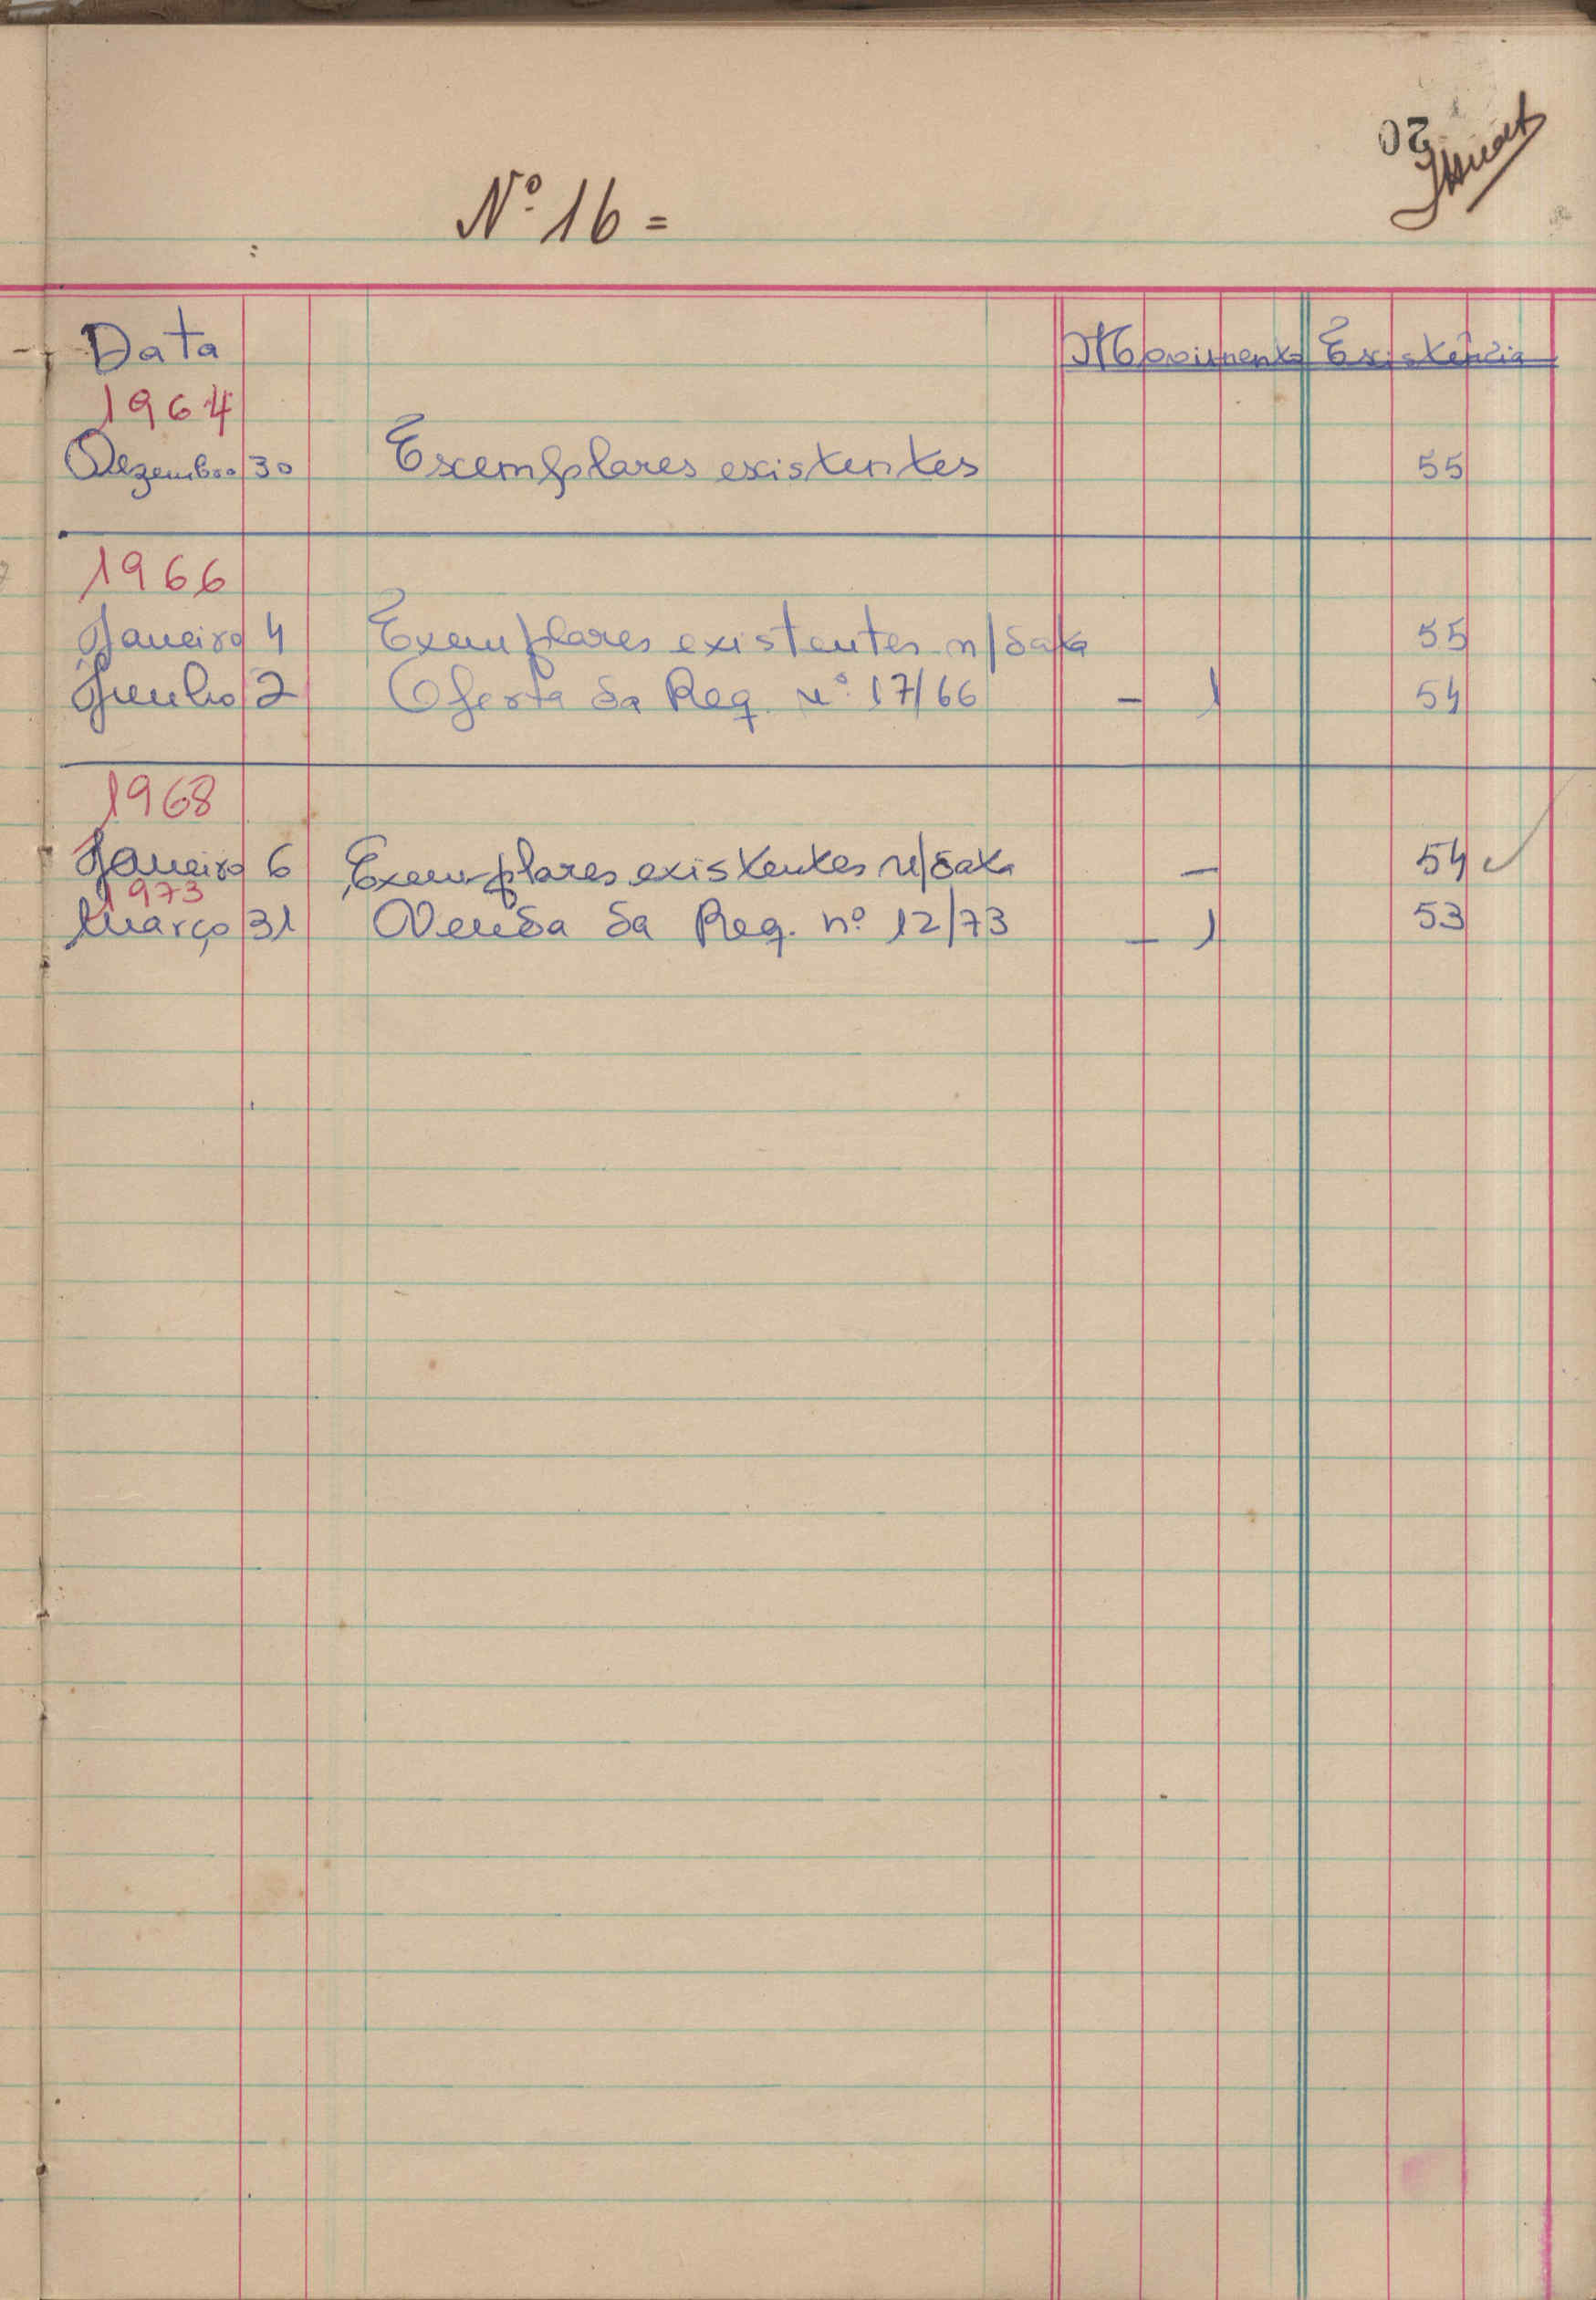 20
Nº 16 =
Data Movimento Existência
1964
Dezembro 30 Exemplares existentes 55
1966
Janeiro 4 Exemplares existentes n/data 55
Junho 2 Oferta da Req. nº 17/66 - 1 54
1968
Janeiro 6 Exemplares existentes n/data - 54 ✓
1973
Março 31 Venda da Req. nº 12/73 - 1 53